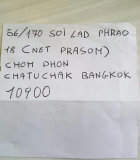 56/170 SOI LAD PHRAO
18 (NET PRASOM)
CHOM PHON
CHATUCHAK BANGKOK
10900